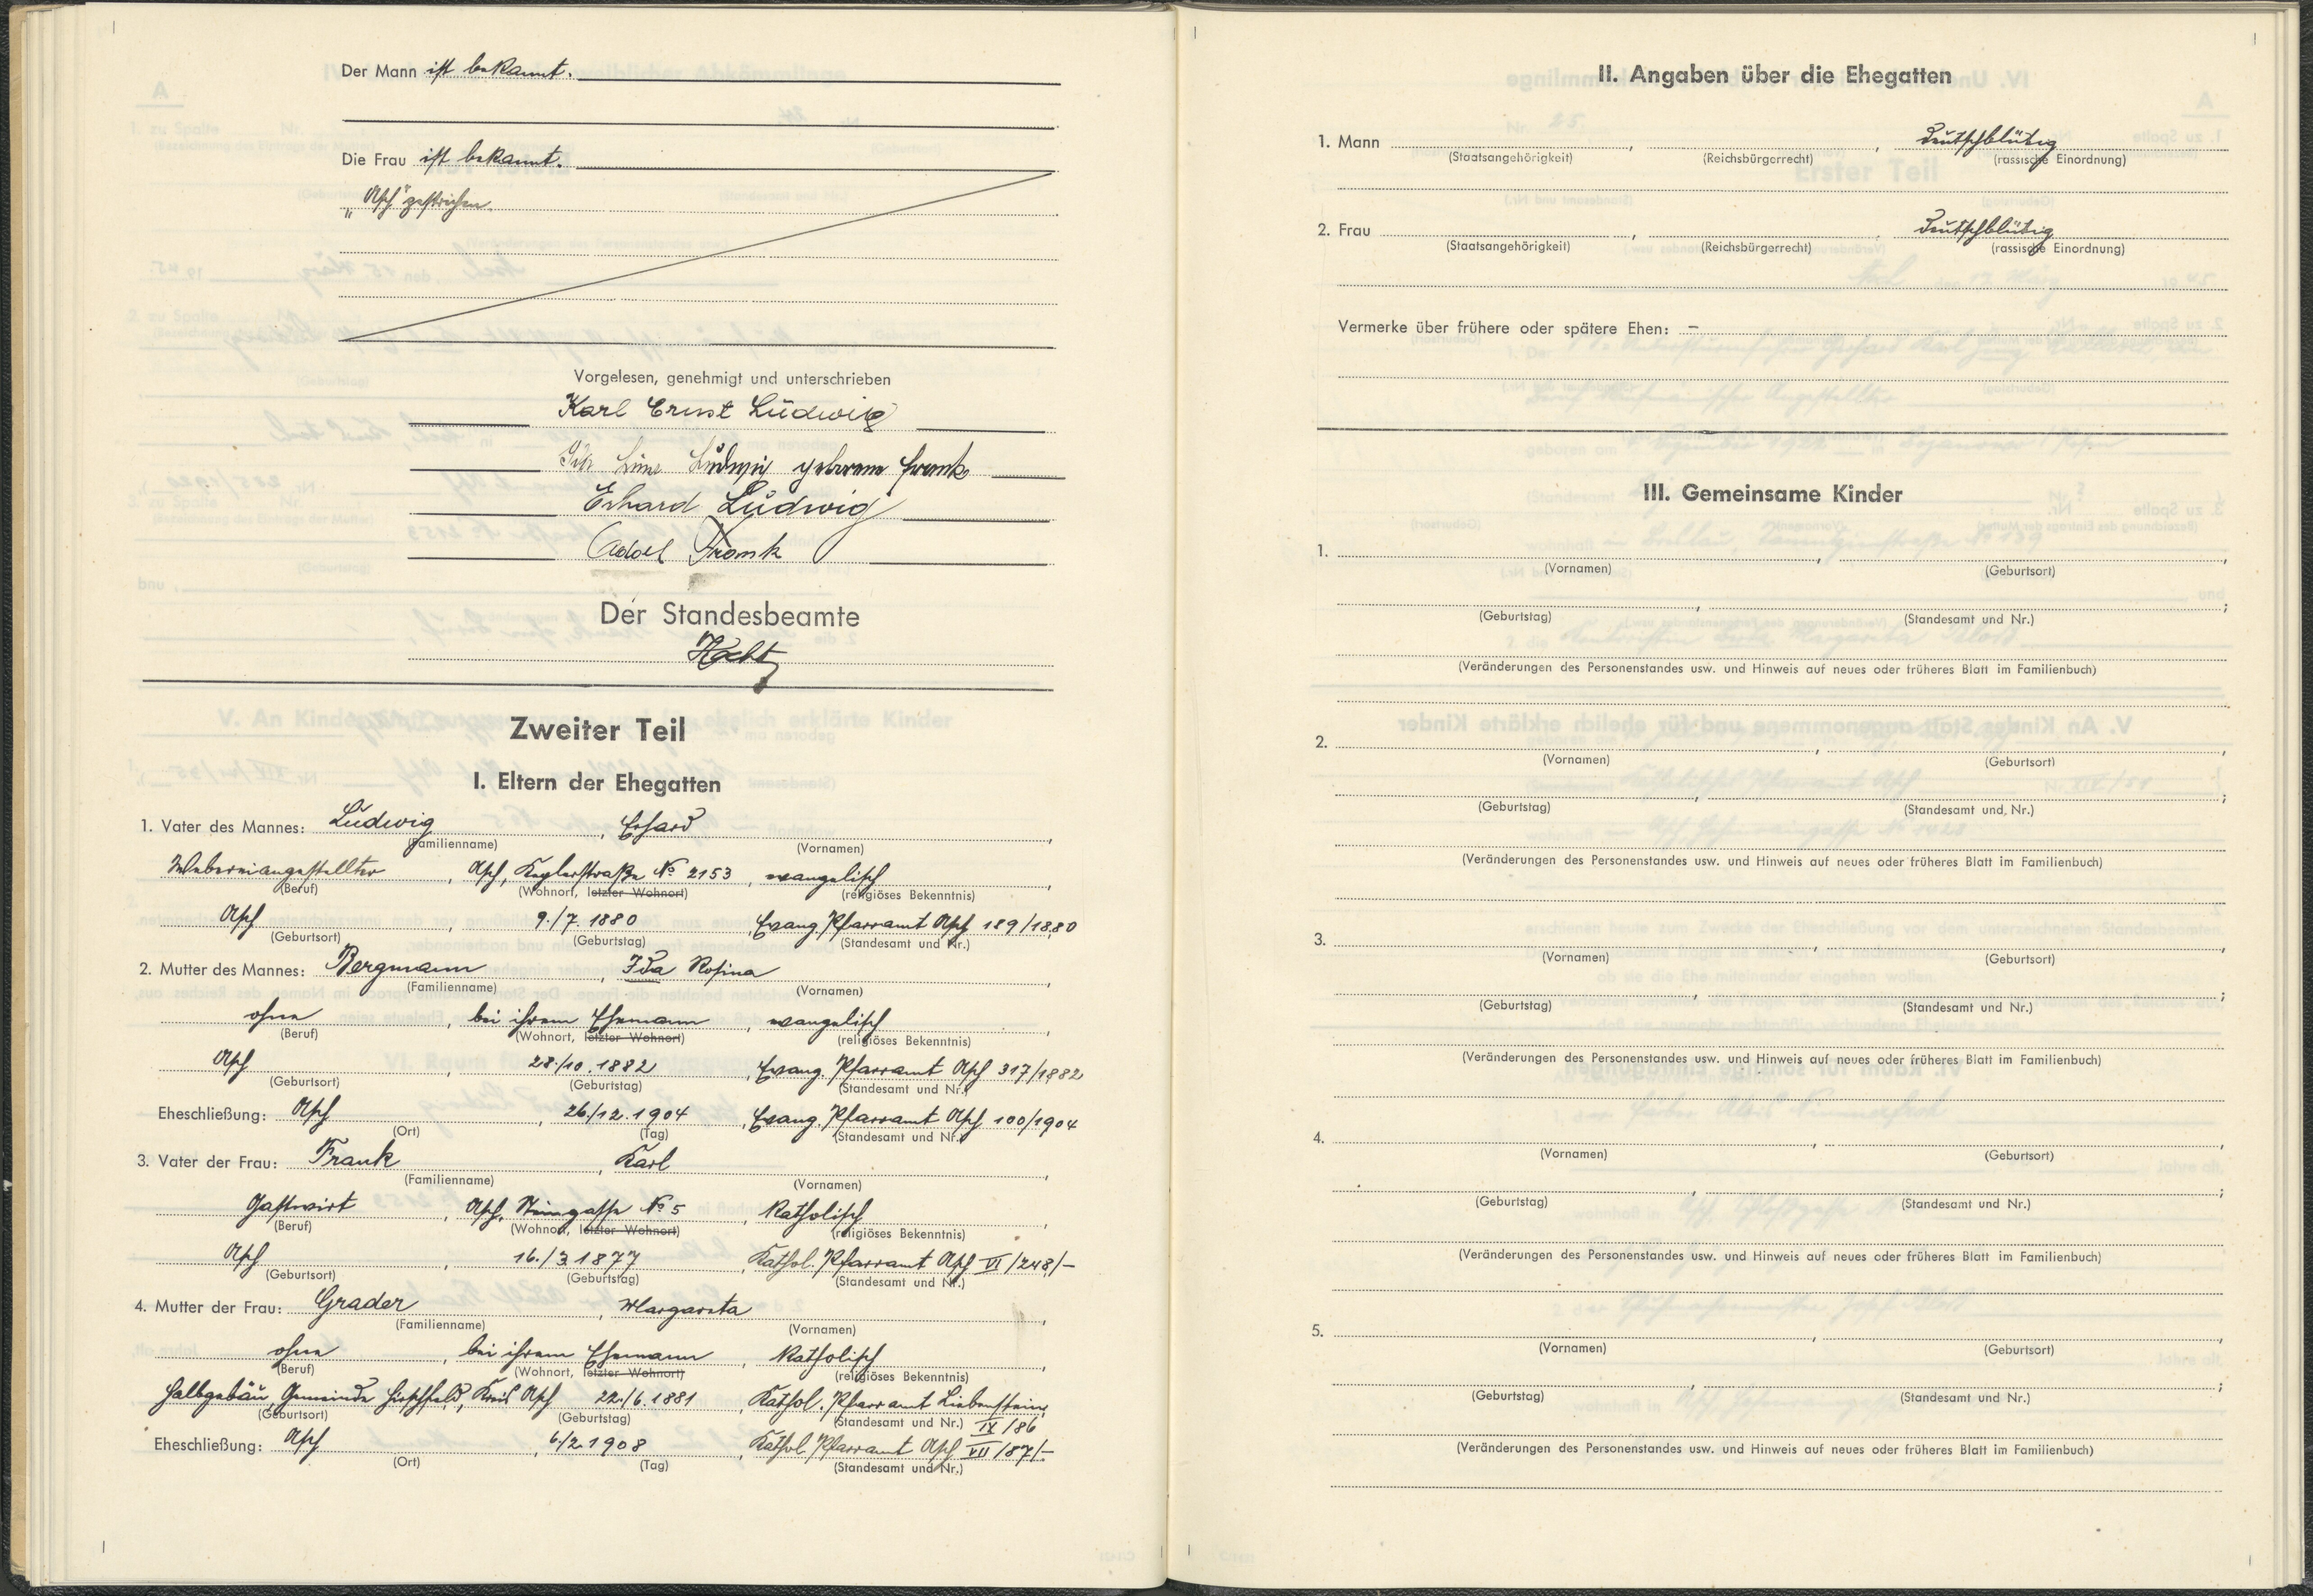 Der Mann ist bekannt.
Die Frau ist bekannt.
„Asch" gestrichen.
Vorgelesen, genehmigt und unterschrieben
Karl Ernst Ludwig
Ludwig geborene Frank
Erhard Ludwig
Adolf Frank
Der Standesbeamte
Zweiter Teil
I. Eltern der Ehegatten
1. Vater des Mannes: Ludwig, Erhard,
(Familienname) (Vornamen)
Webereiangestellter, Asch, Keplerstraße No 2153, evangelisch,
(Beruf) (Wohnort, letzter Wohnort) (religiöses Bekenntnis)
Asch, 9./7. 1880, Evang. Pfarramt Asch 189/1880
(Geburtsort) (Geburtstag) (Standesamt und Nr.)
2. Mutter des Mannes: Bergmann, Ida Rosina,
(Familienname) (Vornamen)
ohne, bei ihrem Ehemann, evangelisch,
(Beruf) (Wohnort, letzter Wohnort) (religiöses Bekenntnis)
Asch, 28./10. 1882, Evang. Pfarramt Asch 317/1882
(Geburtsort) (Geburtstag) (Standesamt und Nr.)
Eheschließung: Asch, 26./12. 1904, Evang. Pfarramt Asch 100/1904
(Ort) (Tag) (Standesamt und Nr.)
3. Vater der Frau: Frank, Karl,
(Familienname) (Vornamen)
Gastwirt, Asch, No 5, katholisch,
(Beruf) (Wohnort, letzter Wohnort) (religiöses Bekenntnis)
Asch, 16./3. 1877, Kathol. Pfarramt Asch VI/248/-
(Geburtsort) (Geburtstag) (Standesamt und Nr.)
4. Mutter der Frau: Grader, Margareta,
(Familienname) (Vornamen)
ohne, bei ihrem Ehemann, katholisch,
(Beruf) (Wohnort, letzter Wohnort) (religiöses Bekenntnis)
Halbgebäu, Gemeinde Hirschfeld, Kreis Asch 22./6. 1881, Kathol. Pfarramt Liebenstein,
(Geburtsort) (Geburtstag) (Standesamt und Nr.) IX/86
Eheschließung: Asch, 6./2. 1908, Kathol. Pfarramt Asch VII/87/-
(Ort) (Tag) (Standesamt und Nr.)
II. Angaben über die Ehegatten
1. Mann , , deutschblütig
(Staatsangehörigkeit) (Reichsbürgerrecht) (rassische Einordnung)
2. Frau , , deutschblütig
(Staatsangehörigkeit) (Reichsbürgerrecht) (rassische Einordnung)
Vermerke über frühere oder spätere Ehen: –
III. Gemeinsame Kinder
1. , ,
(Vornamen) (Geburtsort)
, ;
(Geburtstag) (Standesamt und Nr.)
(Veränderungen des Personenstandes usw. und Hinweis auf neues oder früheres Blatt im Familienbuch)
2. , ,
(Vornamen) (Geburtsort)
, ;
(Geburtstag) (Standesamt und Nr.)
(Veränderungen des Personenstandes usw. und Hinweis auf neues oder früheres Blatt im Familienbuch)
3. , ,
(Vornamen) (Geburtsort)
, ;
(Geburtstag) (Standesamt und Nr.)
(Veränderungen des Personenstandes usw. und Hinweis auf neues oder früheres Blatt im Familienbuch)
4. , ,
(Vornamen) (Geburtsort)
, ;
(Geburtstag) (Standesamt und Nr.)
(Veränderungen des Personenstandes usw. und Hinweis auf neues oder früheres Blatt im Familienbuch)
5. , ,
(Vornamen) (Geburtsort)
, ;
(Geburtstag) (Standesamt und Nr.)
(Veränderungen des Personenstandes usw. und Hinweis auf neues oder früheres Blatt im Familienbuch)